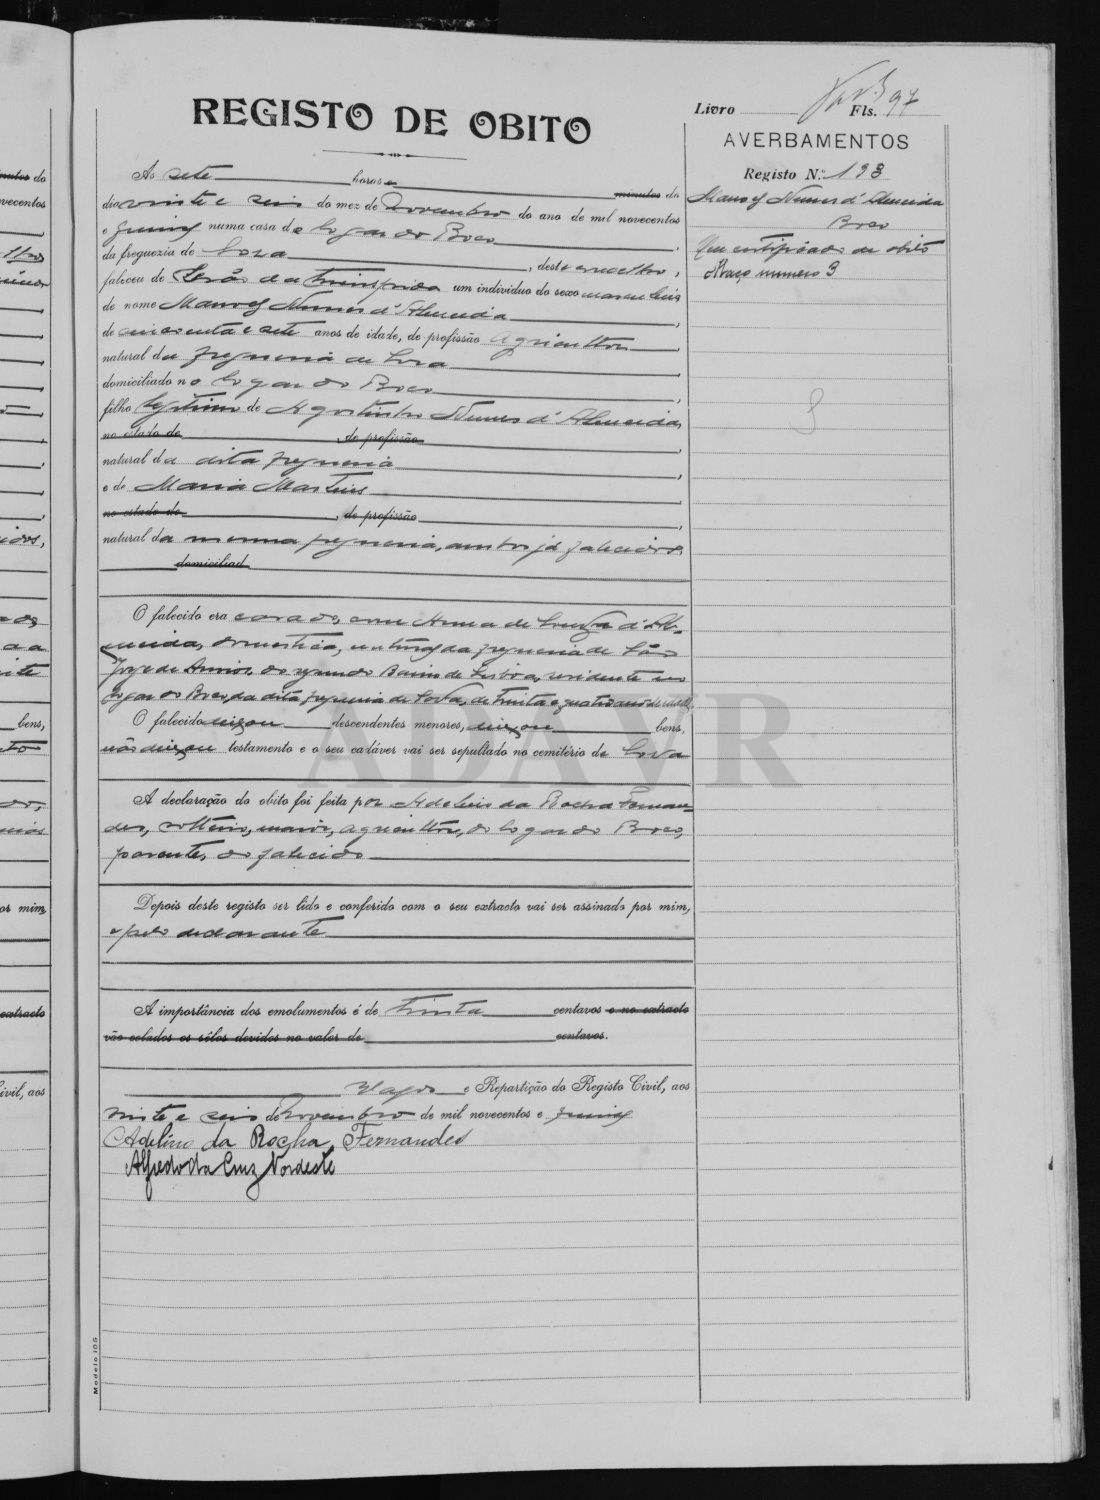 REGISTO DE OBITO
Livro Fls. 97
AVERBAMENTOS
Registo N.º 193
Manoel Nunes d'Almeida
Boco
Um certificado de obito
Maço numero 3
Ás sete horas e minutos do
dia vinte e seis do mez de Novembro do ano de mil novecentos
e quinze numa casa do logar do Boco,
da freguezia de Soza, deste concelho,
faleceu de um individuo do sexo masculino
de nome Manoel Nunes d'Almeida,
de cincoenta e sete anos de idade, de profissão agricultor,
natural da freguezia de Soza,
domiciliado no logar do Boco,
filho legitimo de Agostinho Nunes d'Almeida,
no estado de, de profissão,
natural da dita freguezia,
e de Maria Martins,
no estado de, de profissão,
natural da mesma freguezia, ambos já falecidos
domiciliad
O falecido era casado, com Anna de Souza d'Al-
meida, domestica, natural da freguezia de São
Jorge de Arroios, do segundo Bairro de Lisboa, residente no
logar do Boco, da dita freguezia de Soza, de trinta e quatro anos de idade.
O falecido deixou descendentes menores, deixou bens,
não deixou testamento e o seu cadáver vai ser sepultado no cemitério de Soza
A declaração do obito foi feita por Adelino da Rocha Fernan-
des, solteiro, maior, agricultor, do logar do Boco,
parente, do falecido
Depois deste registo ser lido e conferido com o seu extracto vai ser assinado por mim,
e pelo declarante
A importância dos emolumentos é de trinta centavos e no extracto
vão colados os sêlos devidos no valor de centavos.
Vagos e Repartição do Registo Civil, aos
vinte e seis de Novembro de mil novecentos e quinze
Adelino da Rocha Fernandes
Alfredo da Cruz Nordeste
Modelo 105
ADAVR